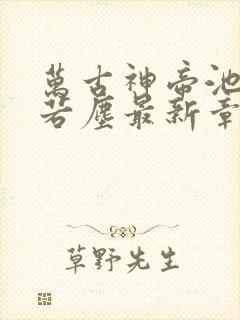 萬古神帝池
若塵最新章
草野先生